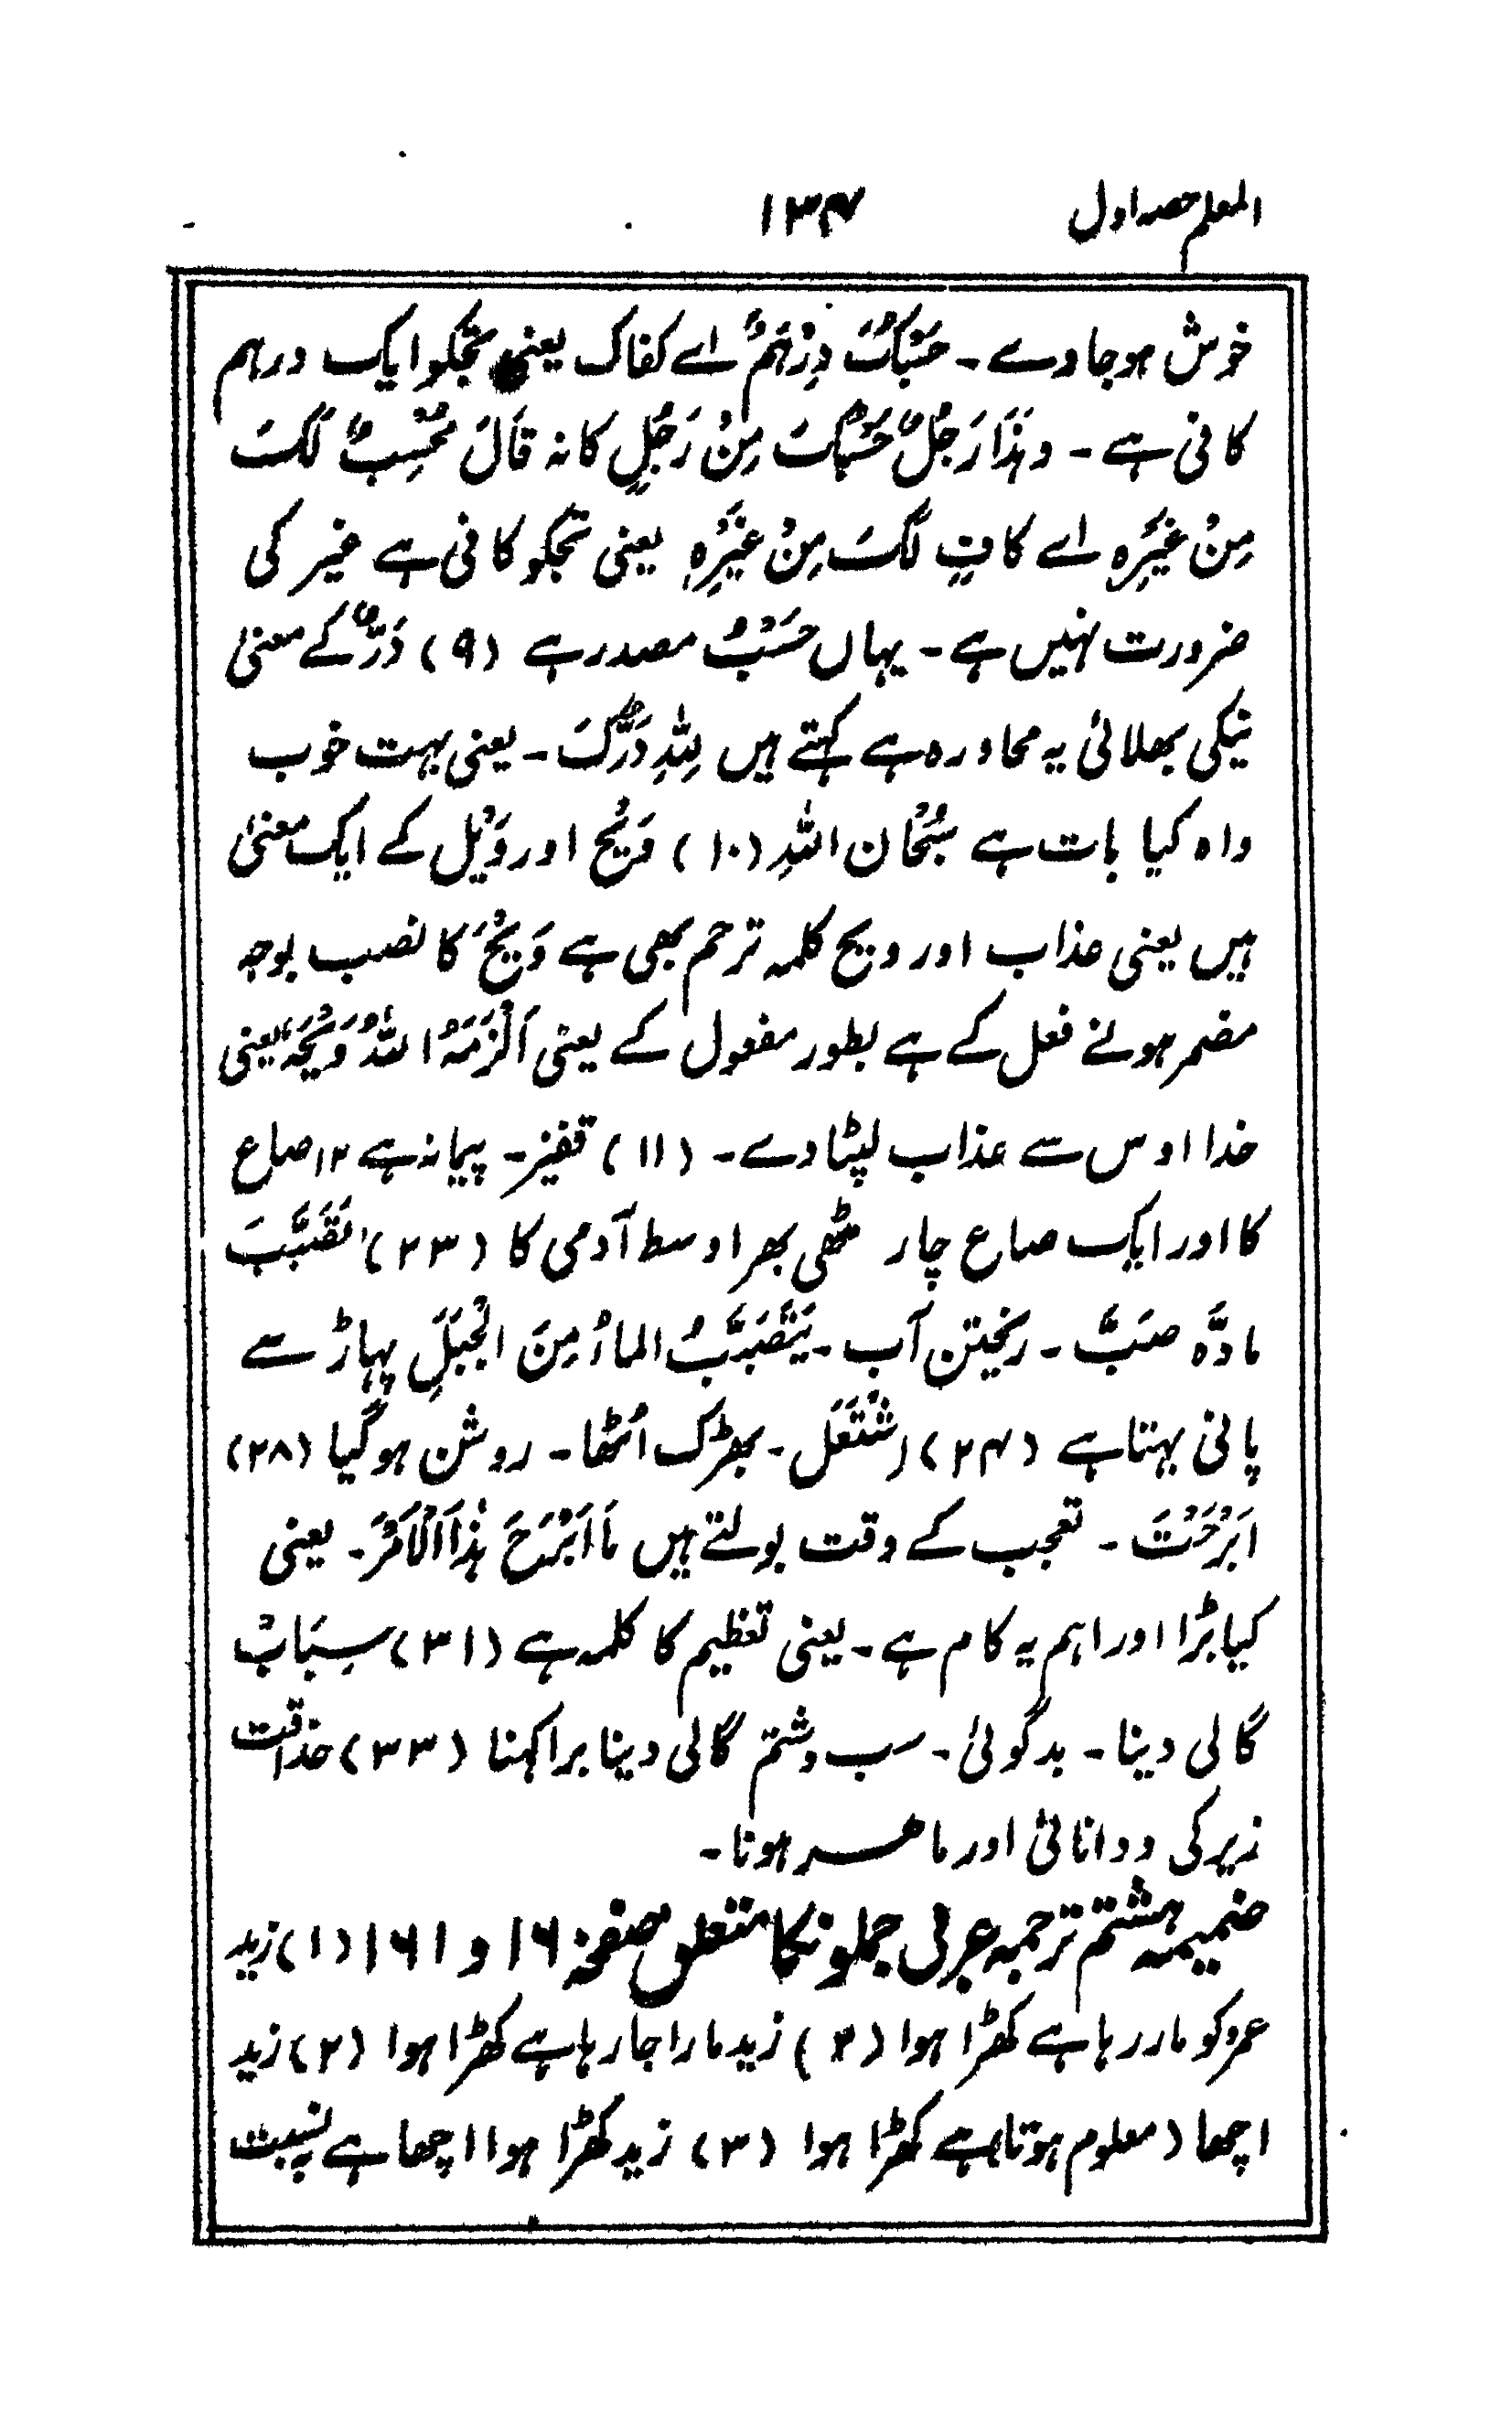 المعلم حصہ اول ۱۳۴
خوش ہوجاوے ۔ حَسْبُکَ دِرْہَمٌ اے کفاک یعنی تجکو ایک درہم
کافی ہے ۔ وہٰذَا رَجُلٌ حَسْبُکَ مِنْ رَجُلٍ کانہ قَالَ مُحْسِبٌ لَکَ
مِنْ غَیْرِہٖ اے کافٍ لَکَ مِنْ غَیْرِہٖ یعنی تجکو کافی ہے غیر کی
ضرورت نہیں ہے ۔ یہاں حَسْبُ مصدر ہے (۹) دَرٌّ کے معنیٰ
نیکی بھلائی یہ محاورہ ہے کہتے ہیں لِلّٰہِ دَرُّکَ ۔ یعنی بہت خوب
واہ کیا بات ہے سُبْحَان اللّٰہِ (۱۰) وَیْح اور وَیْل کے ایک معنیٰ
ہیں یعنی عذاب اور ویح کلمہ ترحم بھی ہے وَیْحَ کا نصب بوجہ
مضمر ہونے فعل کے ہے بطور مفعول کے یعنی اَلْزَمَہُ اللّٰہُ وَیْحَہٗ یعنی
خدا اوس سے عذاب لپٹا دے ۔ (۱۱) قفیز ۔ پیمانہ ہے ۱۲ صاع
کا اور ایک صاع چار مٹھی بھر اوسط آدمی کا (۲۳) تَصَبَّبَ
مادَّہ صَبَّ ۔ ریختن آب ۔ یَتَصَبَّبُ الماءُ مِنَ الْجَبَلِ پہاڑ سے
پانی بہتا ہے (۲۴) اِشْتَعَلَ ۔ بھڑک اُٹھا ۔ روشن ہوگیا (۲۸)
اَبْرَحْتَ ۔ تعجب کے وقت بولتے ہیں مَا اَبْرَحَ ہٰذَا الْاَمْرَ ۔ یعنی
کیا بڑا اور اہم یہ کام ہے ۔ یعنی تعظیم کا کلمہ ہے (۳۱) سِبَابْ
گالی دینا ۔ بدگوئی ۔ سب وشتم گالی دینا برا کہنا (۳۳) حذاقت
زیرکی و دانائی اور ماہر ہونا ۔
ضمیمہ ہشتم ترجمہ عربی جملونکا متعلق صفحہ ۱۶۰ و ۱۶۱ (۱) زید
عمرو کو مار رہا ہے کھڑا ہوا (۲) زید مارا جا رہا ہے کھڑا ہوا (۲) زید
اچھا (معلوم ہوتا) ہے کھڑا ہوا (۳) زید کھڑا ہوا اچھا ہے بہ نسبت